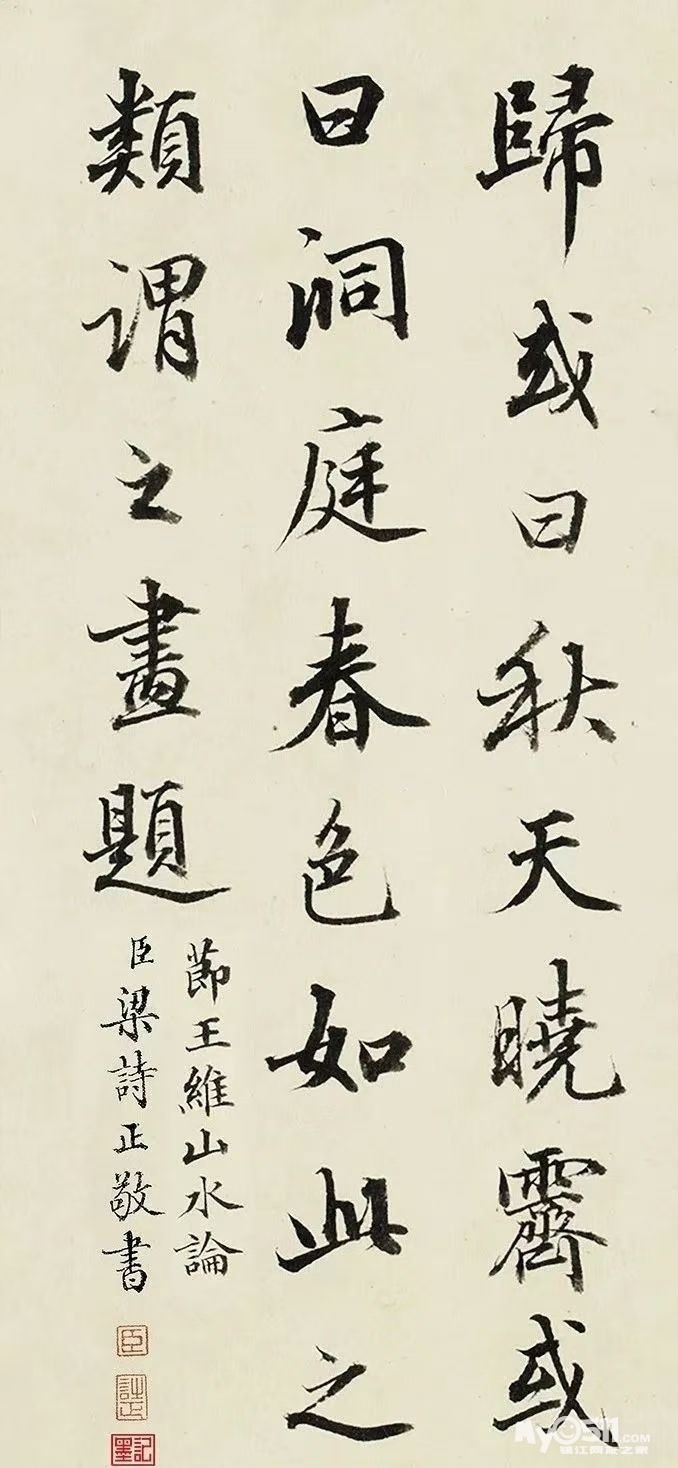 歸或曰秋天曉霽或
曰洞庭春色如此之
類謂之畫題
節王維山水論
臣梁詩正敬書
臣
詩正